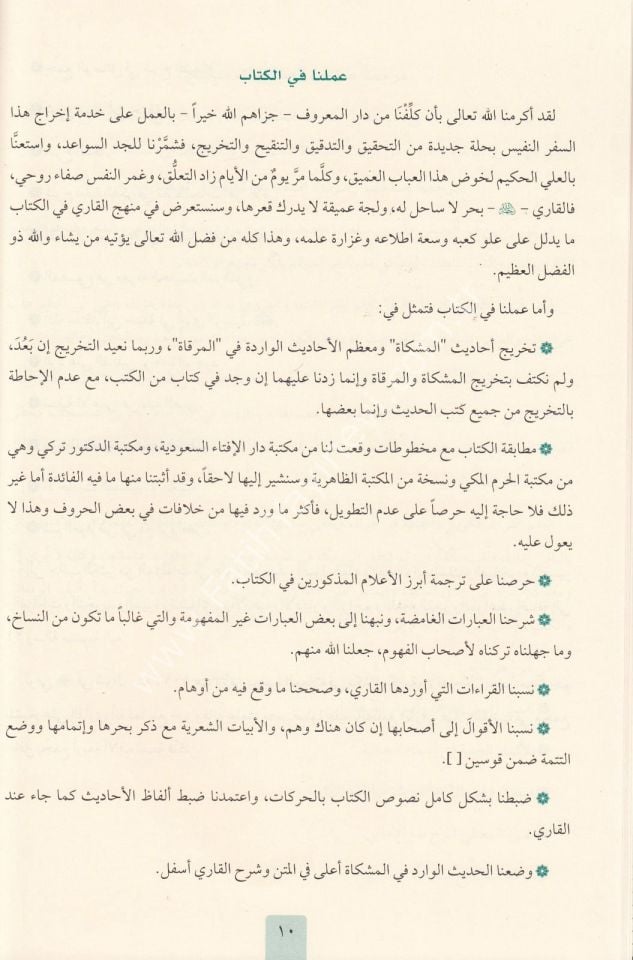 عملنا في الكتاب
لقد أكرمنا الله تعالى بأن كلِّفْنَا من دار المعروف - جزاهم الله خيراً - بالعمل على خدمة إخراج هذا
السفر النفيس بحلة جديدة من التحقيق والتدقيق والتنقيح والتخريج، فشمَّرْنا للجد السواعد، واستعنَّا
بالعلي الحكيم لخوض هذا العباب العميق، وكلَّما مرَّ يومٌ من الأيام زاد التعلُّق، وغمر النفس صفاء روحي،
فالقاري - - بحر لا ساحل له، ولجة عميقة لا يدرك قعرها، وسنستعرض في منهج القاري في الكتاب
ما يدلل على علو كعبه وسعة اطلاعه وغزارة علمه، وهذا كله من فضل الله تعالى يؤتيه من يشاء والله ذو
الفضل العظيم.
وأما عملنا في الكتاب فتمثل في:
تخريج أحاديث "المشكاة" ومعظم الأحاديث الواردة في "المرقاة"، وربما نعيد التخريج إن بَعُدَ،
ولم نكتف بتخريج المشكاة والمرقاة وإنما زدنا عليهما إن وجد في كتاب من الكتب، مع عدم الإحاطة
بالتخريج من جميع كتب الحديث وإنما بعضها.
مطابقة الكتاب مع مخطوطات وقعت لنا من مكتبة دار الإفتاء السعودية، ومكتبة الدكتور تركي وهي
من مكتبة الحرم المكي ونسخة من المكتبة الظاهرية وسنشير إليها لاحقاً، وقد أثبتنا منها ما فيه الفائدة أما غير
ذلك فلا حاجة إليه حرصاً على عدم التطويل، فأكثر ما ورد فيها من خلافات في بعض الحروف وهذا لا
يعول عليه.
حرصنا على ترجمة أبرز الأعلام المذكورين في الكتاب.
شرحنا العبارات الغامضة، ونبهنا إلى بعض العبارات غير المفهومة والتي غالباً ما تكون من النساخ،
وما جهلناه تركناه لأصحاب الفهوم، جعلنا الله منهم.
نسبنا القراءات التي أوردها القاري، وصححنا ما وقع فيه من أوهام.
نسبنا الأقوالَ إلى أصحابها إن كان هناك وهم، والأبيات الشعرية مع ذكر بحرها وإتمامها ووضع
التتمة ضمن قوسين [ ].
ضبطنا بشكل كامل نصوص الكتاب بالحركات، واعتمدنا ضبط ألفاظ الأحاديث كما جاء عند
القاري.
وضعنا الحديث الوارد في المشكاة أعلى في المتن وشرح القاري أسفل.
١٠